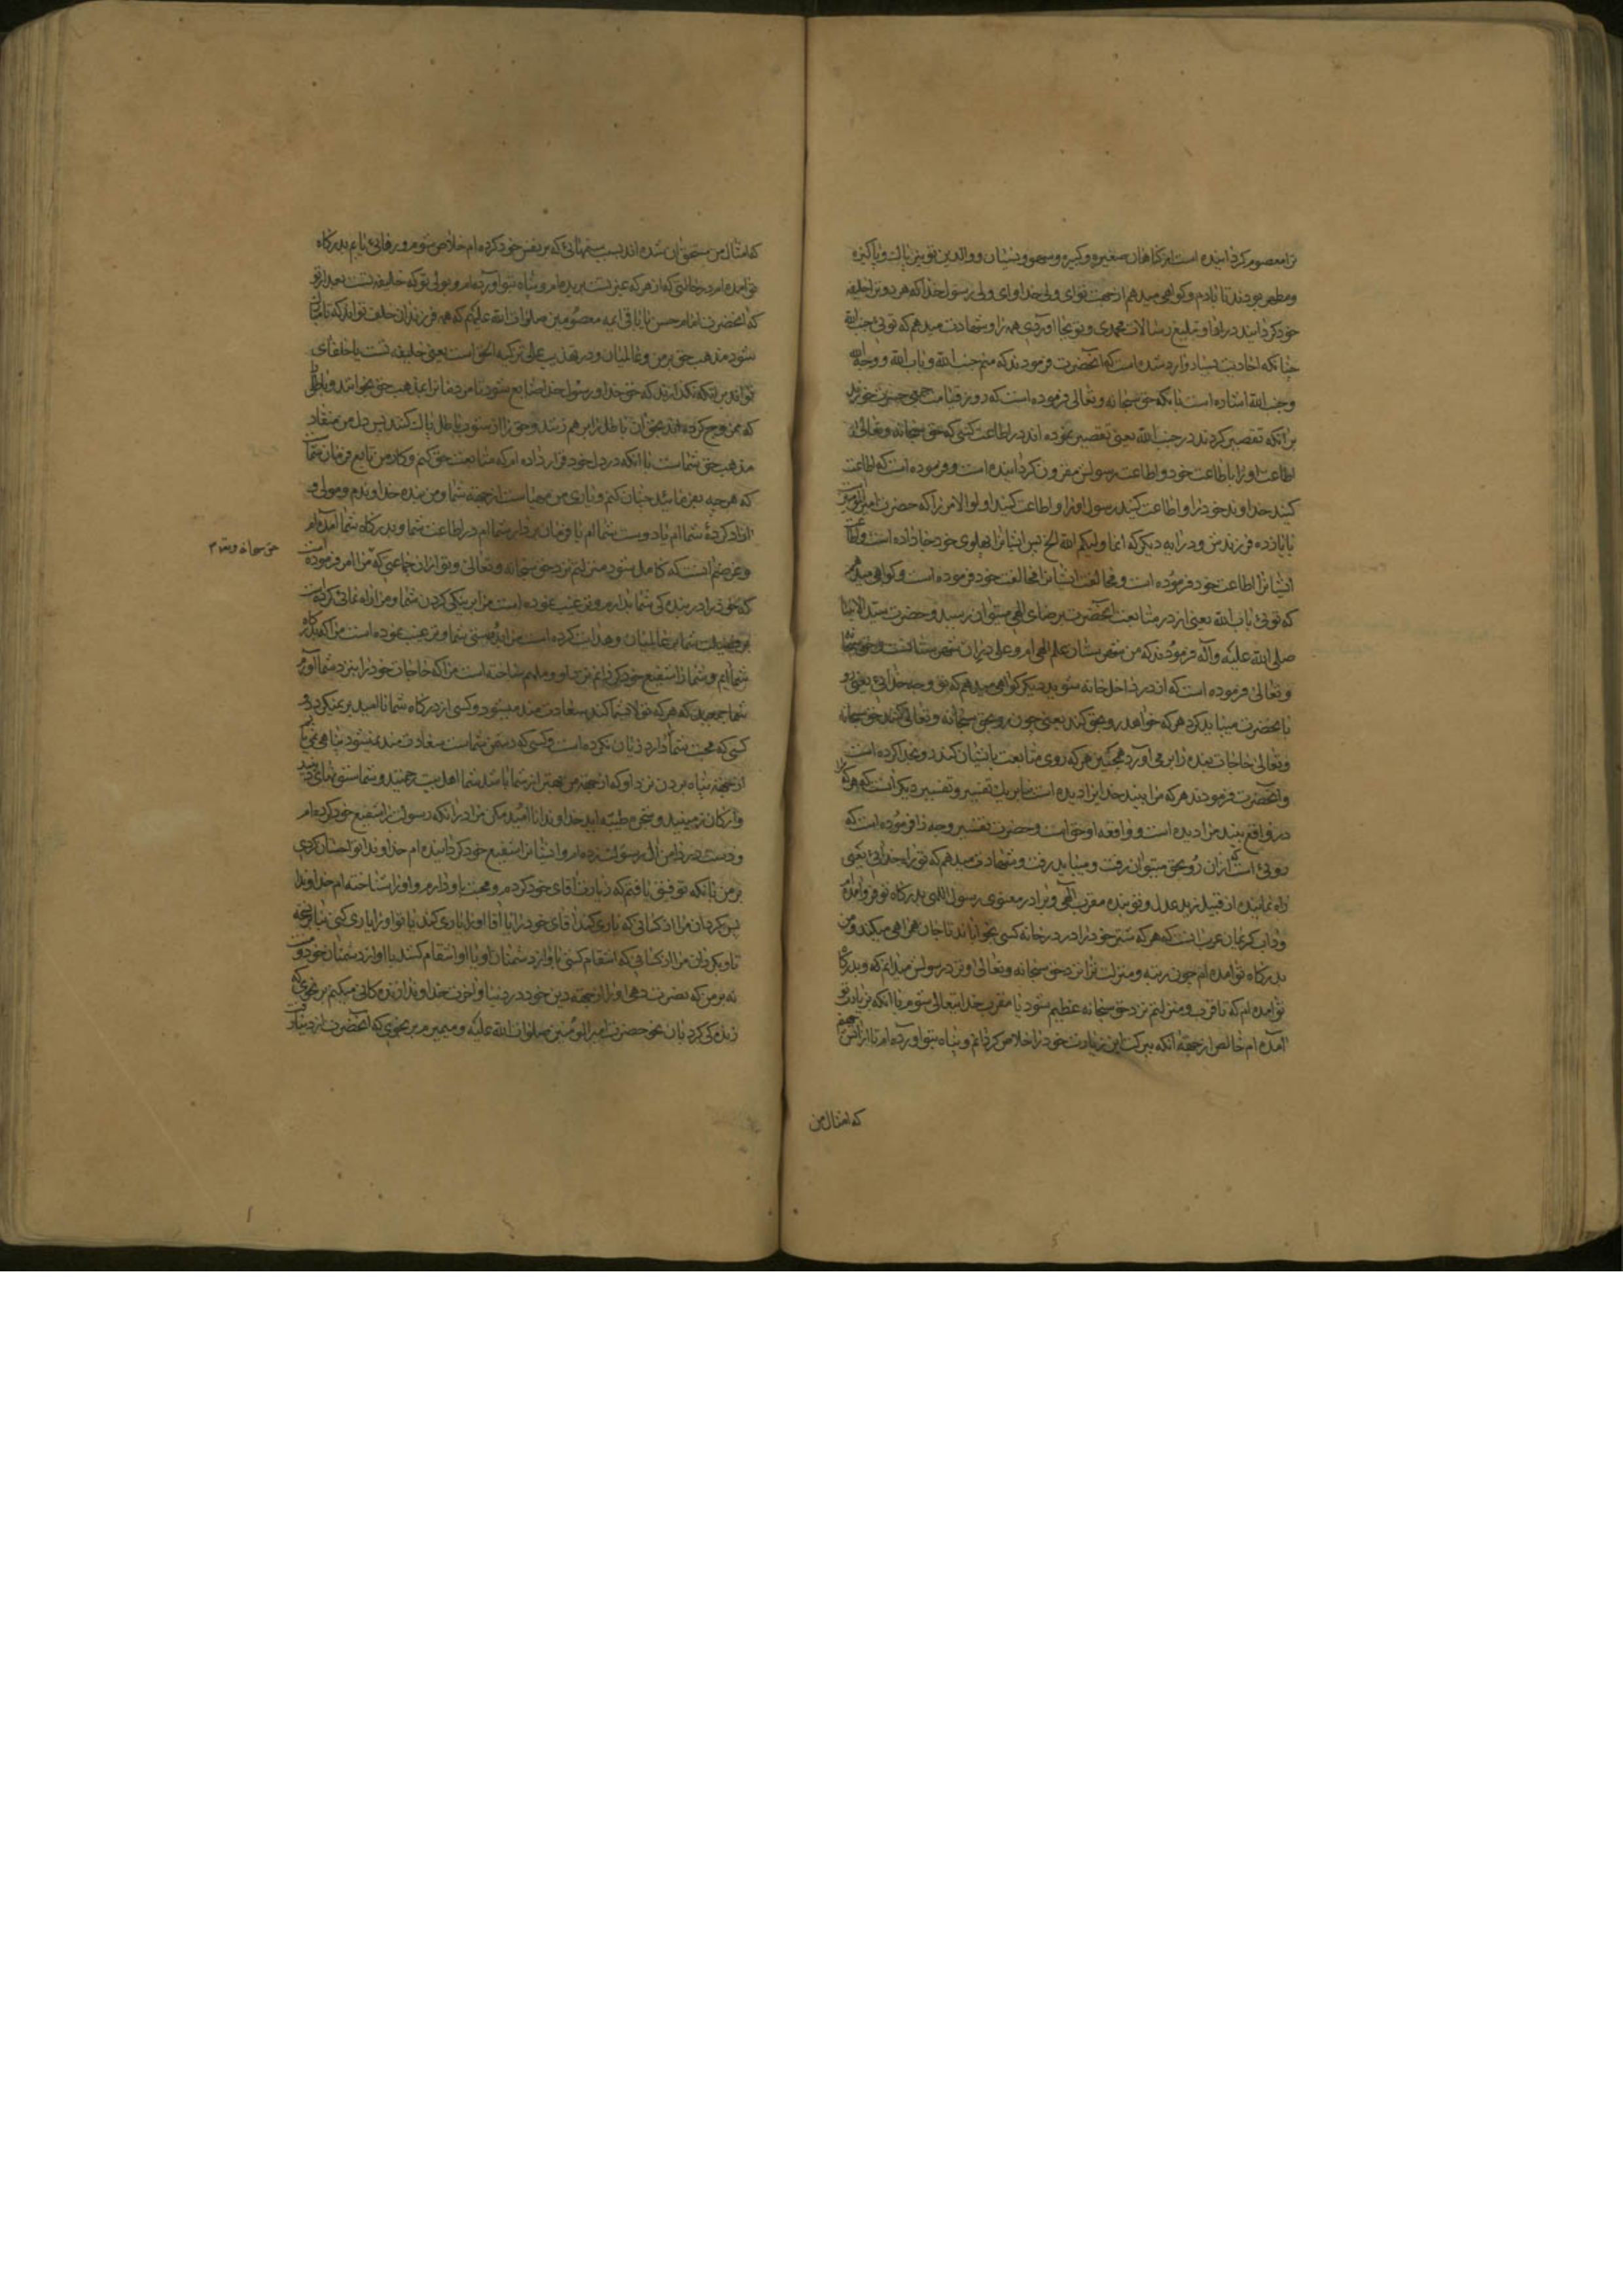 ترا معصوم گردانیده است از گناهان صغیره و کبیره و سهو و نسیان و والدین تو نیز پاک و پاکیزه
و مطهر بودند تا بآدم و گواهی میدهم از جهت تو ای ولی خدا و ای ولی رسول خدا که هر دو ترا خلیفه
خود گردانیدند در ادا و تبلیغ رسالات محمدی و تو بجا آوردی همه را و شهادت میدهم که توئی جنب الله
چنانکه احادیث بسیار وارد شده است که آنحضرت فرمودند که منم جنب الله و باب الله و وجه الله
و جنب الله اشاره است بآنکه حق سبحانه و تعالی فرموده است که روز قیامت جمعی حسرت خورند
بر آنکه تقصیر کردند در جنب الله یعنی تقصیر نموده اند در اطاعت کسی که حق سبحانه و تعالی
اطاعت او را باطاعت خود و اطاعت رسولش مقرون گردانیده است و فرموده است که اطاعت
کنید خداوند خود را و اطاعت کنید رسول او را و اطاعت کنید اولوالامر را که حضرت امیرالمؤمنین
با یازده فرزندش و در آیه دیگر که انما ولیکم الله الخ پس ایشانرا پهلوی خود جا داده است و اطاعت
ایشانرا اطاعت خود فرموده است و مخالفت ایشانرا مخالفت خود فرموده است و گواهی میدهم
که توئی باب الله یعنی از در متابعت آنحضرت برضای الهی میتوان رسید و حضرت سید الانبیا
صلی الله علیه و آله فرمودند که من شهرستان علم الهی ام و علی در آن شهرستانست و حق سبحانه
و تعالی فرموده است که از در داخل خانه شوید دیگر گواهی میدهم که تو وجه خدائی یعنی رو
بآنحضرت میباید کرد هر که خواهد رو بحق کند یعنی چون رو بحق سبحانه و تعالی کنند حق سبحانه
و تعالی حاجات بنده را بر می آورد همچنین هر که روی متابعت بایشان کند رو بخدا کرده است
و آنحضرت فرمودند هر که مرا بیند خدا را دیده است بنا بر یک تفسیر و تفسیر دیگر آنست که هر که مرا
در واقع بیند مرا دیده است و واقعه او حق است و حضرت تفسیر وجه را فرموده است که
روئی است که از آن رو بحق میتوان رفت و میباید رفت و شهادت میدهم که تو راه خدائی یعنی
راه نماینده از قبیل زید عدل و تو بنده مقرب الهی و برادر معنوی رسول اللهی بدرگاه تو فرود آمده ام
و داب کریمان عرب است که هر که شتر خود را در در خانه کسی بخواباند تا جان همراهی میکند و من
بدرگاه تو آمده ام چون رتبه و منزلت ترا نزد حق سبحانه و تعالی و نزد رسولش میدانم که و بدرگاه
تو آمده ام که تا قرب و منزلتم نزد حق سبحانه عظیم شود یا مقرب خدایتعالی شوم با آنکه بزیارت تو
آمده ام خالص از جهة آنکه ببرکت این زیارت خود را خلاص گردانم و پناه بتو آورده ام تا از آتش جهنم
که امثال من
که امثال من مستحق آن شده اند بسبب ستمهائی که بر نفس خود کرده ام خلاص شوم و رهائی یابم بدرگاه
تو آمده ام در حالتی که از هر که غیر تست بریده ام و پناه بتو آورده ام و بولی تو که خلیفه تست بعد از تو
که آنحضرت امام حسن یا باقی ائمه معصومین صلوات الله علیهم که همه فرزندان خلف تو اند که
شود مذهب حق بر من و عالمیان و در تهذیب علی تزکیه الحق است یعنی خلیفه تست یا خلفای
تو اند بر آنکه نگذارند که حق خدا و رسول خدا ضایع شود تا مردمانرا بمذهب حق بخوانند و باطلی
که ممزوج کرده اند بحق آن باطل را بر هم زنند و حق را از ستون باطل پاک کنند پس دل من منقاد
مذهب حق شماست با آنکه در دل خود قرار داده ام که متابعت حق کنم و کار من تابع فرمان شما
که هر چه بفرمائید چنان کنم و یاری من مهیاست از جهة شما و من بنده خداوندم و مولی و
آزاد کرده شماام یا دوست شماام یا فرمان بردار شماام در اطاعت شما و بدرگاه شما آمده ام
و غرضم آنست که کامل شود منزلتم نزد حق سبحانه و تعالی و تو از آن جماعتی که مرا امر فرموده است
حق سبحانه و تعالی م
که خود را در بندگی شما بدارم و ترغیب نموده است مرا بر نیکی کردن شما و مرا راه نمائی کرده است
بر فضیلت شما بر عالمیان و هدایت کرده است مرا بدوستی شما و ترغیب نموده است مرا که بدرگاه
شما آیم و شما را شفیع خود گردانم نزد او و ملهم ساخته است مرا که حاجات خود را بنزد شما آورم
شما جمعیید که هر که تولا بشما کند سعادت مند میشود و کسی از درگاه شما ناامید بر نمیگردد و
کسی که محبت شما دارد زیان نکرده است و کسی که دشمن شماست سعادت مند نمیشود پناهی نمی یابم
از جهة پناه بردن نزد او که از جهة من بهتر از شما باشد شما اهل بیت رحمتید و شما ستونهای دینید
و ارکان زمینید و شجره طیبه اید خداوندا ناامید مکن مرا در آنکه رسولت را شفیع خود کرده ام
و دست در دامن آل رسولت زده ام و ایشانرا شفیع خود گردانیده ام خداوندا تو احسان کردی
بر من بآنکه توفیق یافتم که زیارت آقای خود کردم و محبت باو دارم و او را شناخته ام خداوندا
پس بگردان مرا از کسانی که یاری کنند آقای خود را یا آقا او را یاری کند یا تو او را یاری کنی
تا و بگردان مرا از کسانی که انتقام کشی باو از دشمنان او یا او انتقام کشد یا او از دشمنان خود
نه بر من که نصرت دهی او را از جهة دین خود در دنیا و آخرت خداوندا زندگانی میکنم بر نحوی که
زندگی کرد بآن نحو حضرت امیرالمؤمنین صلوات الله علیه و میمیرم بر نحوی که آنحضرت از دنیا رفت